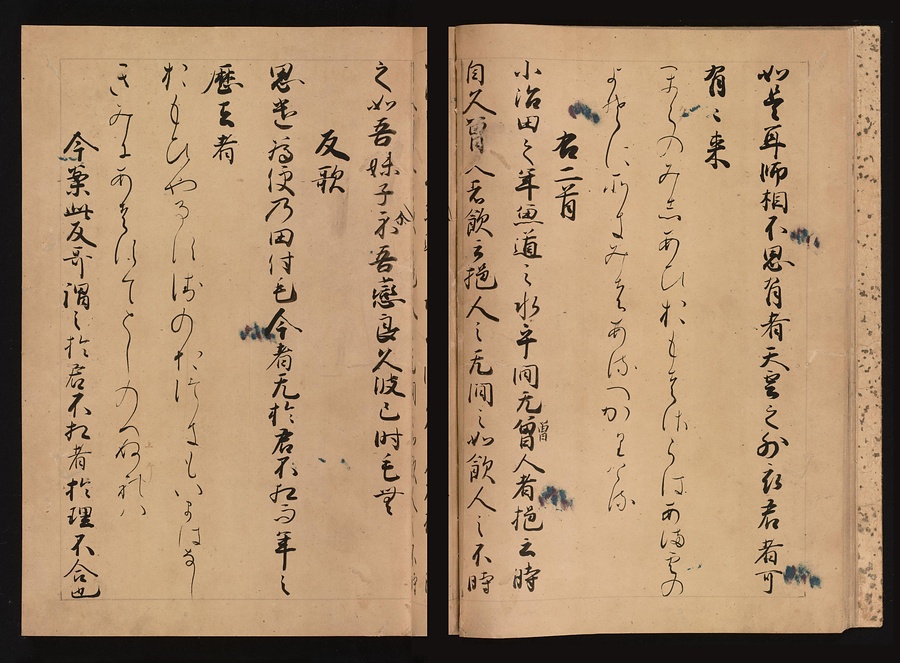 如是耳師相不思有者天雲之外衣君者可
有〻来
かくのみしあひおもはさらはあまくもの
よそにそきみはあるへかりける
右二首
小治田之年魚道之水乎間无曽人者挹云時
自久曽人者飲云挹人之无間之如飲人之不時
之如吾妹子尓吾戀良久波已時毛無
反歌
思遣為便乃田付毛今者无於君不相而年之
歴去者
おもひやるすへのたつきもいまはなし
きみにあはすてとしのへぬれは
今案此反哥謂之於君不相者於理不合也